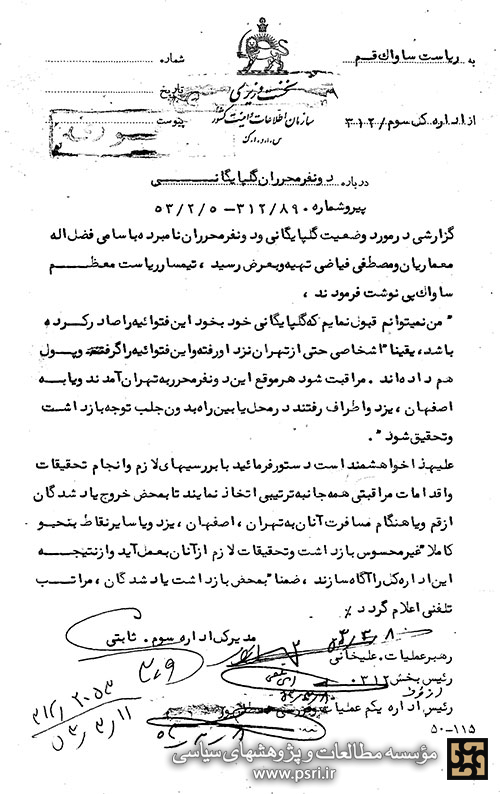 به ریاست ساواک قم
شماره
نخست وزیری
تاریخ
سازمان اطلاعات و امنیت کشور
پیوست
س.ا.و.ا.ک
از اداره کل سوم / ۳۱۲
درباره دو نفر محرران گلپایگانی
پیرو شماره ۳۱۲/۸۹۰ - ۵۳/۲/۵
گزارشی در مورد وضعیت گلپایگانی و دو نفر محرران نامبرده باسامی فضل اله
معماریان و مصطفی فیاضی تهیه و بعرض رسید ، تیمسار ریاست معظم
ساواک پی نوشت فرمودند ،
" من نمیتوانم قبول نمایم که گلپایگانی خود بخود این فتوائیه را صادر کرده
باشد ، یقینا" اشخاصی حتی از تهران نزد او رفته و این فتوائیه را گرفته و پول
هم داده اند . مراقبت شود هر موقع این دو نفر محرر به تهران آمدند و یا به
اصفهان ، یزد و اطراف رفتند در محل یا بین راه بدون جلب توجه بازداشت
و تحقیق شود " .
علیهذا خواهشمند است دستور فرمائید با بررسیهای لازم و انجام تحقیقات
و اقدامات مراقبتی همه جانبه ترتیبی اتخاذ نمایند تا بمحض خروج یاد شدگان
از قم و یا هنگام مسافرت آنان به تهران ، اصفهان ، یزد و یا سایر نقاط بنحو
کاملا" غیر محسوس بازداشت و تحقیقات لازم از آنان بعمل آید و از نتیجه
این اداره کل را آگاه سازند ، ضمنا" بمحض بازداشت یاد شدگان ، مراتب
تلفنی اعلام گردد ٪
مدیر کل اداره سوم . ثابتی
رهبر عملیات . علیخانی
۵۳/۳/۸
رئیس بخش ۳۱۲
رئیس اداره یکم عملیات
۵۰-۱۱۵
مؤسسه مطالعات و پژوهشهای سیاسی
www.psri.ir